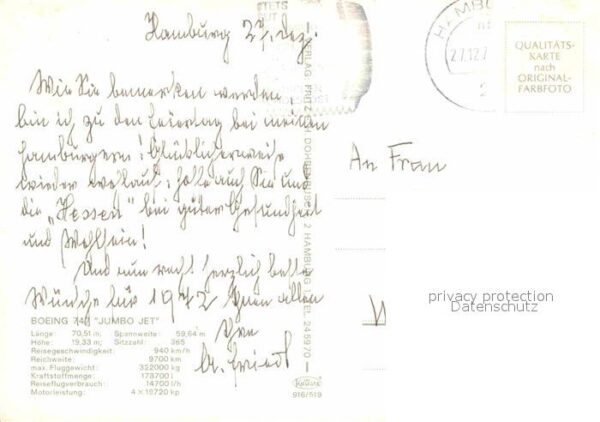 Hamburg 27. Dez.
Wie Sie bemerken werden
bin ich zu den Feiertag bei meinen
Hamburgern! Glücklicherweise
wieder wohlauf; hoffe auch Sie und
die „Hessen" bei guter Gesundheit
und Wohlsein!
Und nun recht herzlich beste
Wünsche für 1972 Ihnen allen
Ihre
An Frau
HAMBU
27.12.7
2
QUALITÄTS-
KARTE
nach
ORIGINAL-
FARBFOTO
privacy protection
Datenschutz
BOEING 747 "JUMBO JET"
Länge: 70,51 m; Spannweite: 59,64 m
Höhe: 19,33 m; Sitzzahl: 365
Reisegeschwindigkeit: 940 km/h
Reichweite: 9700 km
max. Fluggewicht: 322000 kg
Kraftstoffmenge: 178700 l
Reiseflugverbrauch: 14700 l/h
Motorleistung: 4 x 19720 kp
Krüger
916/519